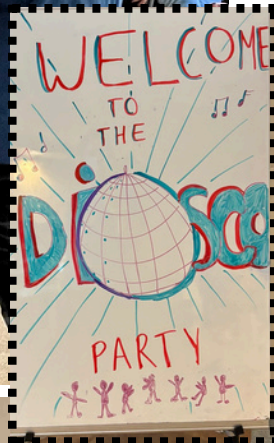 WELCOME
TO
THE
DiSCO
PARTY